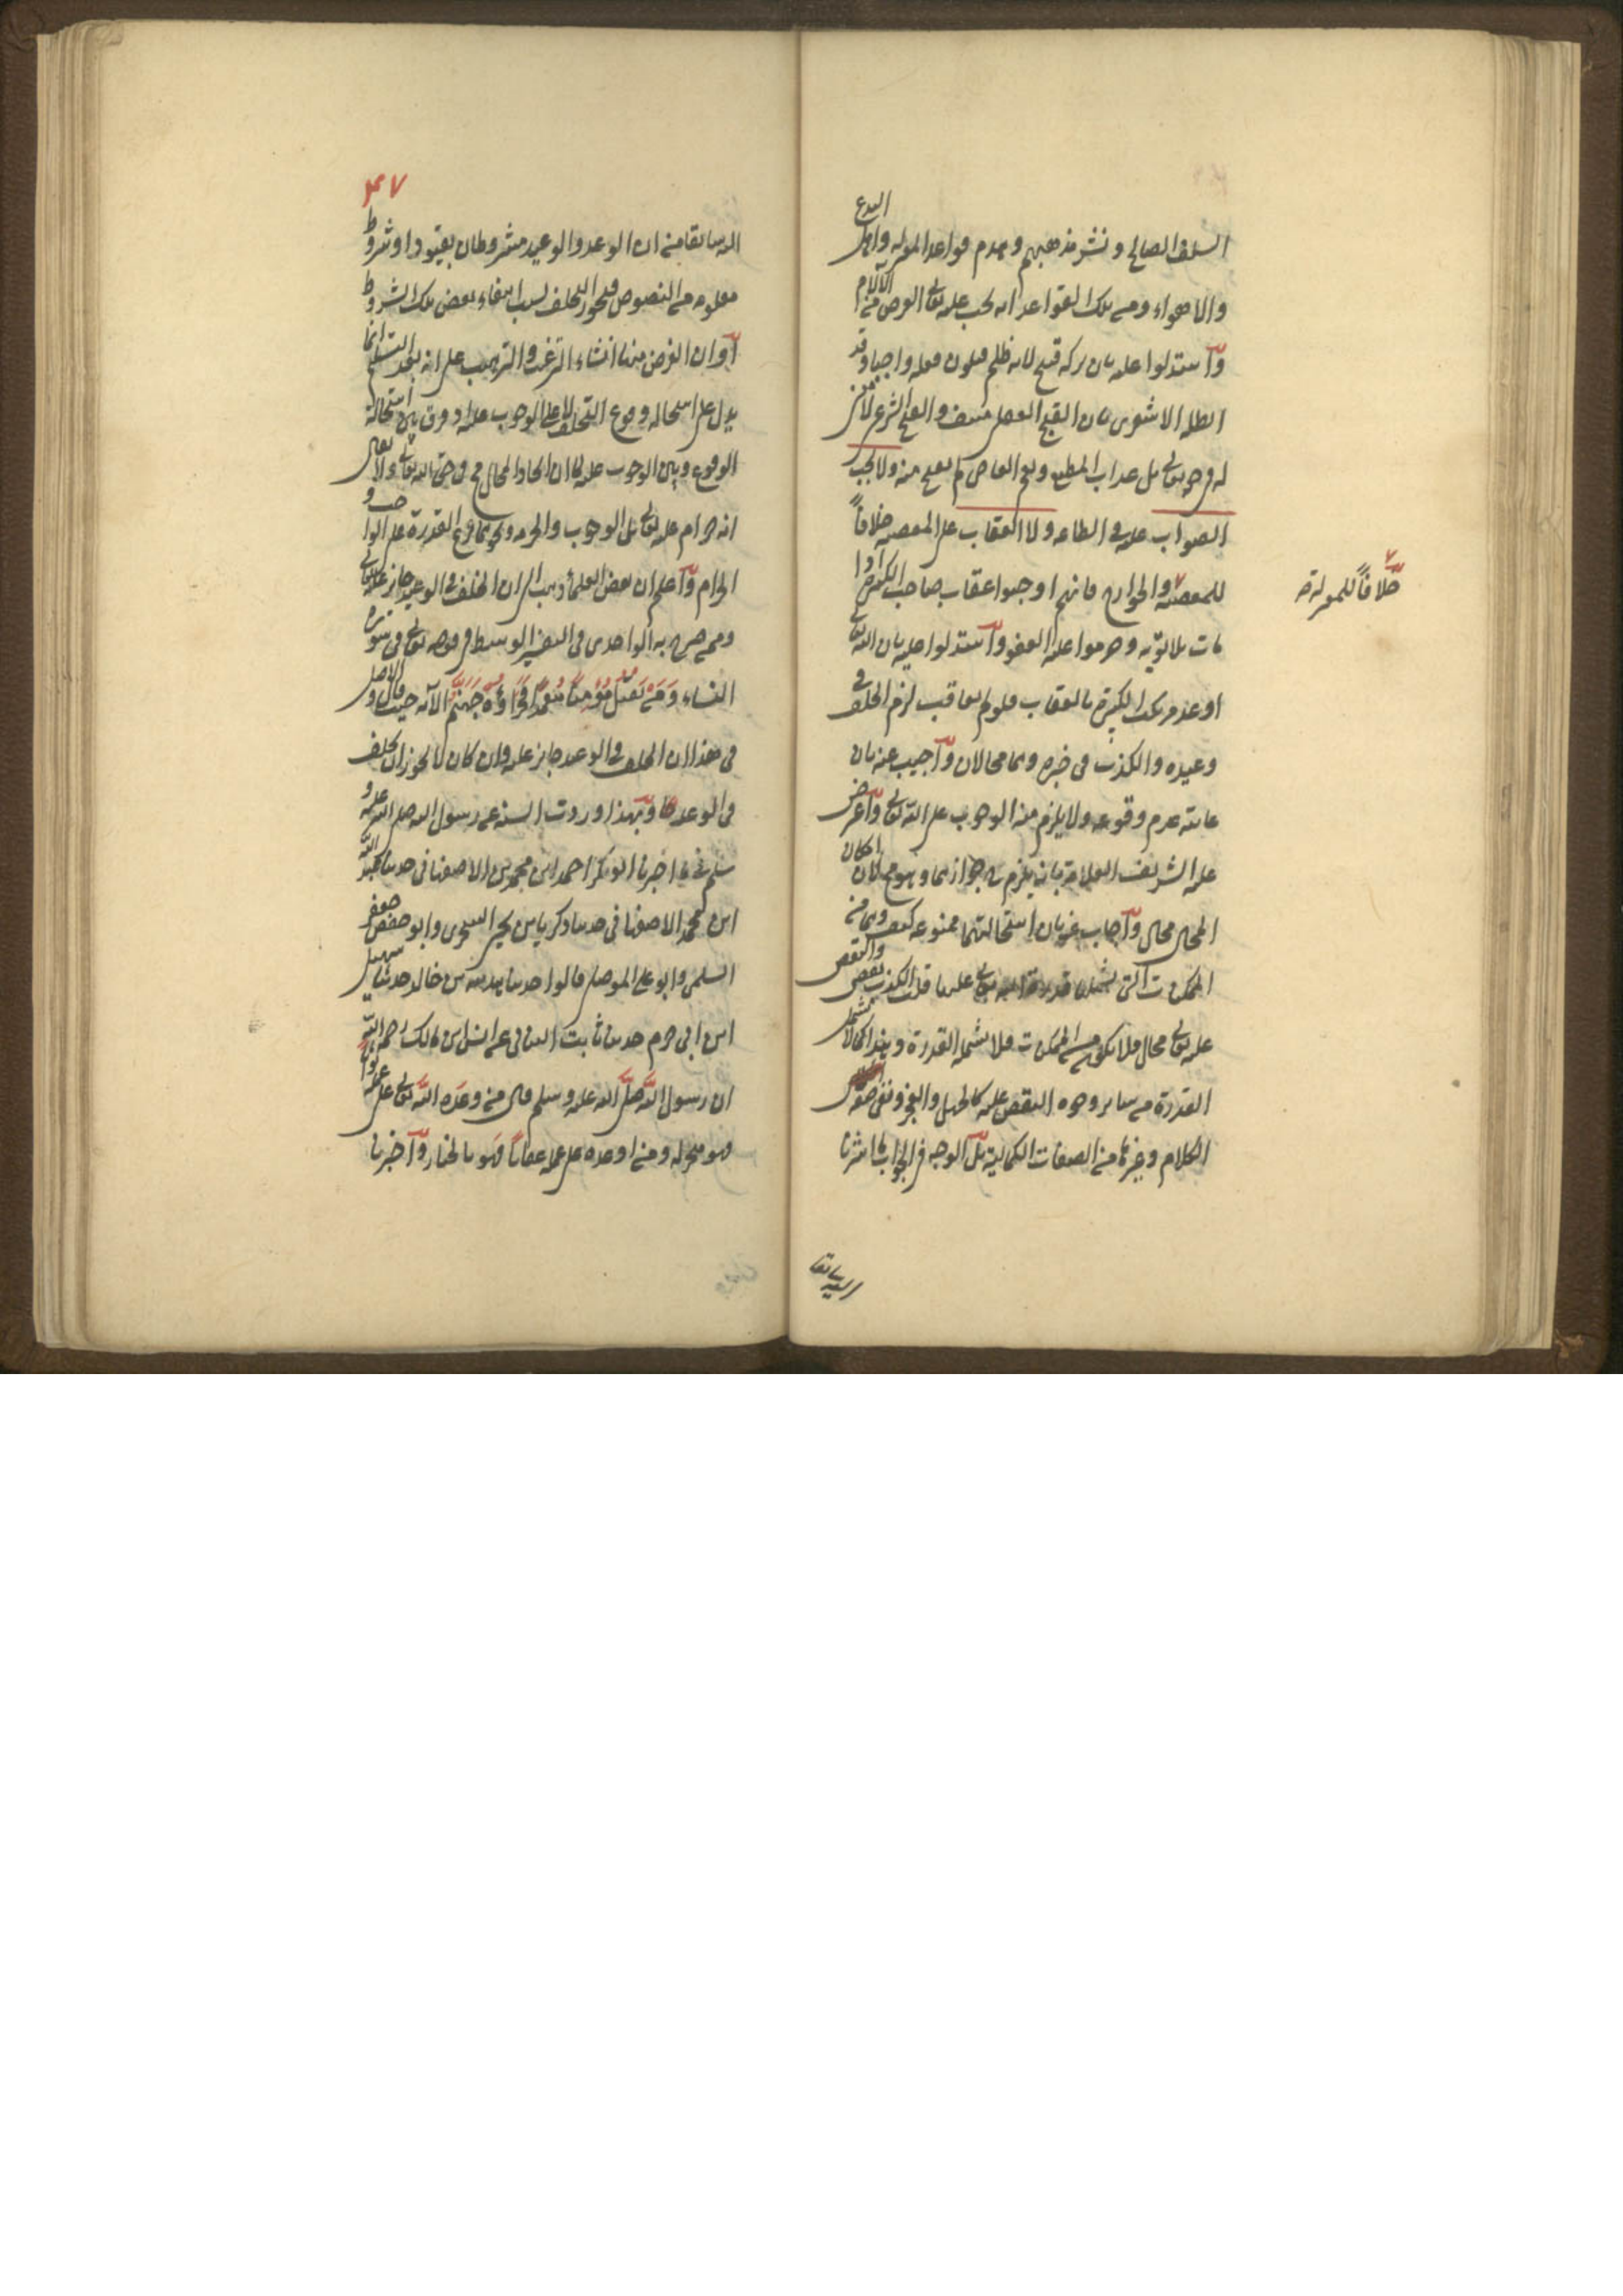 السلف الصالح ونشر مذهبهم وهدم قواعد المعتزلة واهل البدع
والاهواء ومن تلك القواعد انه يجب عليه تعالى العوض من الآلام
واستدلوا عليه بان تركه قبيح لانه ظلم فيكون فعله واجبا وقد
ابطله الاشعري بان القبح العقلي منتف والقبح الشرعي لا
له في حقه تعالى بل عذاب المطيع ونعيم العاصي لم يقبح منه ولا يجب
الصواب عليه في الطاعه ولا العقاب على المعصيه خلافاً
للمعصيه والخوارج فانهم اوجبوا عقاب صاحب الكبيرة اذا
مات بلا توبه وحرموا عليه العفو واستدلوا عليه بان الله تعالى
اوعد مرتكب الكبيرة بالعقاب فلو لم يعاقب لزم الخلف في
وعيده والكذب في خبره وهما محالان واجيب عنه بان
غايته عدم وقوعه ولا يلزم منه الوجوب على الله تعالى واعترض
عليه الشريف العلامة بانه يلزم جوازهما وهو محال لان امكان
المحال محال واجاب عنه بان استحالتهما ممنوعه كيف وهما من
الممكنات التي تشملها قدرة الله تعالى عليهما قلت الكذب نقص والنقص
عليه تعالى محال فلا يكون من الممكنات فلا تشمله القدرة وهذا كما لا تشمل
القدرة من ساير وجوه النقص عليه كالجهل والعجز ونفي صفة
الكلام وغيرها من الصفات الكمالية بل الوجه في الجواب ما اشرنا
اليه سابقا
خلافاً للمعتزلة صح
٤٧
اليه سابقا من ان الوعد والوعيد مشروطان بقيود او شروط
معلومه من النصوص فيجوز التخلف بسبب انتفاء بعض تلك الشروط
او ان الغرض منها انشاء الترغيب والترهيب على انه بعد التسليم انما
يدل على استحالة وقوع التخلف لا على الوجوب عليه اذ فرق بين استحالة
الوقوع وبين الوجوب عليه كما ان ايجاد المحال في حق الله تعالى ولا يقال
انه حرام عليه تعالى بل الوجوب والحرمه ونحوهما فرع القدرة على الواجب و
الحرام واعلم ان بعض العلماء ذهب الى ان الخلف في الوعيد جايز عليه تعالى
وممن صرح به الواحدي في التفسير الوسيط في قوله تعالى في سورة
النساء وَمَنْ يَقْتُلْ مُؤْمِناً مُتَعَمِّداً فَجَزَاؤُهُ جَهَنَّمُ الآية حيث قال والاصل
في هذا ان الخلف في الوعيد جايز عليه وان كان لا يجوز ان يخلف
في الوعد وبهذا وردت السنة عن رسول الله صلى الله عليه و
سلم فيما اخبرنا ابو بكر احمد ابن محمد بن الاصفهاني حدثنا عبد الله
ابن محمد الاصفهاني حدثنا زكريا بن يحيى السجزي وابو جعفر
السلمي وابو على الموصلي قالوا حدثنا هدبه بن خالد حدثنا سهيل
ابن ابي حزم حدثنا ثابت البناني عن انس ابن مالك رحمه الله
ان رسول الله صلى الله عليه وسلم قال من وعده الله تعالى على عمله ثواباً
فهو منجز له ومن اوعده على عمله عقاباً فهو بالخيار واخبرنا